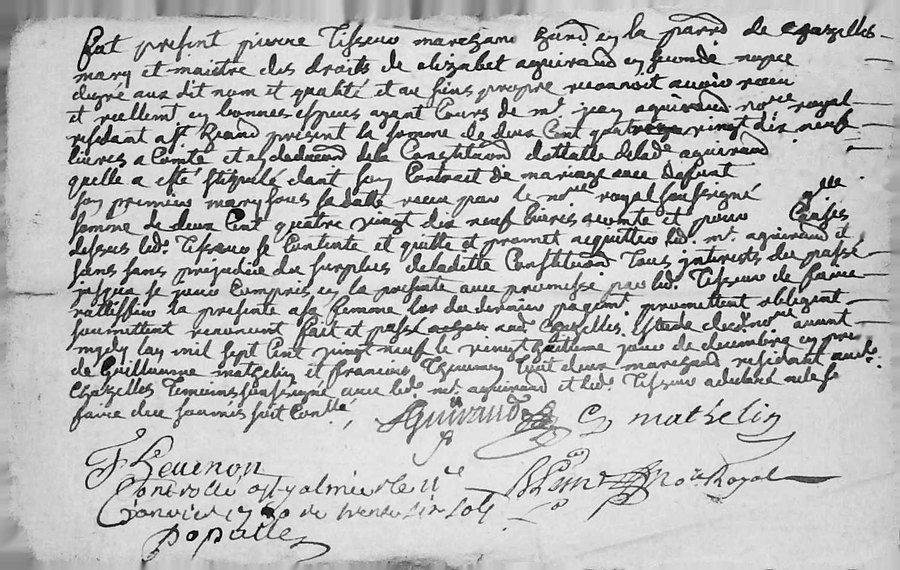 fut present pierre Tisseur marchand en la parre de chazelles
mary et maistre des droits de elizabet aguiraud en seconde nopce
de gré aux dit nom et qualité et au sien propre reconnoit avoir receu
et reellemt en bonnes espesses ayant cours de mr jean aguiraud nore royal
residant a st present la somme de deux cent quatre vingt dix neuf
livres a comte et en de la Constitution dottalle de lad. aguiraud
quelle a esté stipulé dans son Contrait de mariage avec deffunt
son premier mary sous sa datte receu par le nore royal soussigné
somme de deux cent quatre vingt dix neuf livres a comte et pour
desses led. Tisseur se contente et quitte et promet aquitter led. mr aguiraud et
sans sans prejudice du surplus de la ditte Constitution tous interests du passé
jusqua se jour compris en la presente avec promesse par led. Tisseur de faire
rattiffier la presente a sa femme lors du dernier payemt promettent obligent
soumettent renoncent fait et passé aud. Chazelles estude dud. nore avant
mydy lan mil sept cent vingt neuf le vingt huitieme jour de decembre en pre
de Guillaume mathelin et francois tout deux marchand residant aud.
Chazelles temoins soussigné avec led. mr aguiraud et led. Tisseur a declaré ne le
faire de ce soumis suit
AGuiraud G mathelin
F
Controllé a st galmier le
janvier 1730 Re trente six sols
Nore Royal
popalle